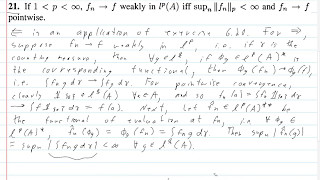 21. If 1 < p < ∞, fₙ → f weakly in lᵖ(A) iff supₙ ‖fₙ‖ₚ < ∞ and fₙ → f
pointwise.
⇐ is an application of exercise 6.20. For ⇒,
suppose fₙ → f weakly in lᵖ, i.e. if γ is the
counting measure, then ∀g ∈ l^q(A), if φ_g is
the corresponding functional, then φ_g(fₙ) → φ_g(f),
i.e. ∫fₙg dγ → ∫fg dγ. For pointwise convergence,
clearly ∈ l^q(A) ∀a ∈ A, and so fₙ(a) = ∫fₙ dγ
→ ∫f dγ = f(a). Next, let f̂ₙ ∈ lᵖ(A)** be
the functional of evaluation at fₙ, i.e. ∀ φ_g ∈
lᵖ(A)*, f̂ₙ(φ_g) = φ_g(fₙ) = ∫fₙg dγ. Then supₙ |f̂ₙ(g)|
= supₙ |∫fₙg dγ| < ∞ ∀g ∈ l^q(A).